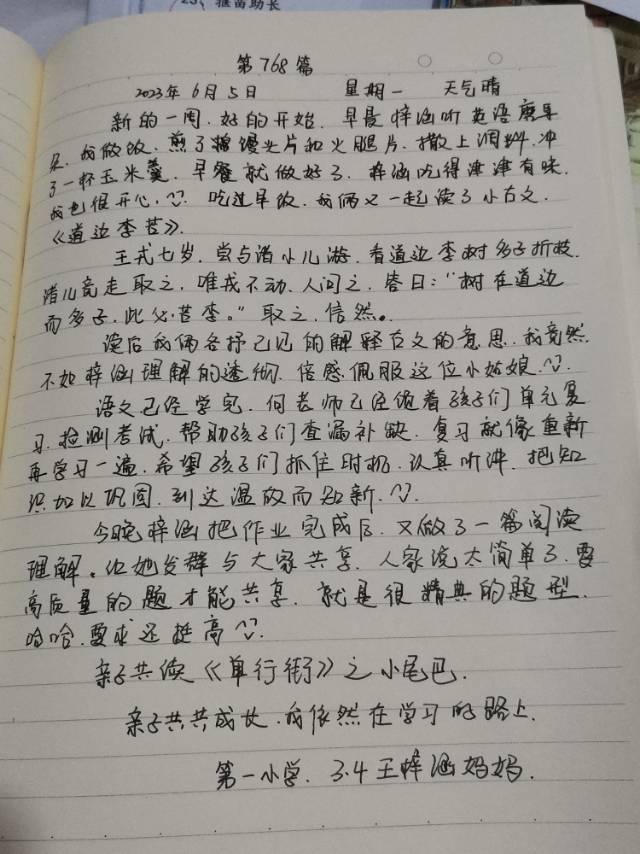 揠苗助长
第768篇
2023年6月5日 星期一 天气晴
新的一周.好的开始.早晨梓涵听英语康早
朵.我做饭.煎了馒头片和火腿片.撒上调料.冲
了一杯玉米羹.早餐就做好了.梓涵吃得津津有味.
我也很开心.吃过早饭.我俩又一起读了小古文.
《道边李苦》.
王戎七岁.尝与诸小儿游.看道边李树多子折枝.
诸儿竞走取之.唯戎不动.人问之.答曰:“树在道边
而多子.此必苦李。”取之.信然。
读后我俩各抒己见的解释古文的意思.我竟然
不如梓涵理解的透彻.倍感佩服这位小姑娘.
语文已经学完.何老师已经领着孩子们单元复
习.检测考试.帮助孩子们查漏补缺.复习就像重新
再学习一遍.希望孩子们抓住时机.认真听讲.把知
识加以巩固.到达温故而知新.
今晚梓涵把作业完成后.又做了一篇阅读
理解。让她发群与大家共享.人家说太简单了.要
高质量的题才能共享.就是很精典的题型.
哈哈.要求还挺高.
亲子共读《单行街》之小尾巴.
亲子共共成长.我依然在学习的路上.
第一小学.3.4王梓涵妈妈.